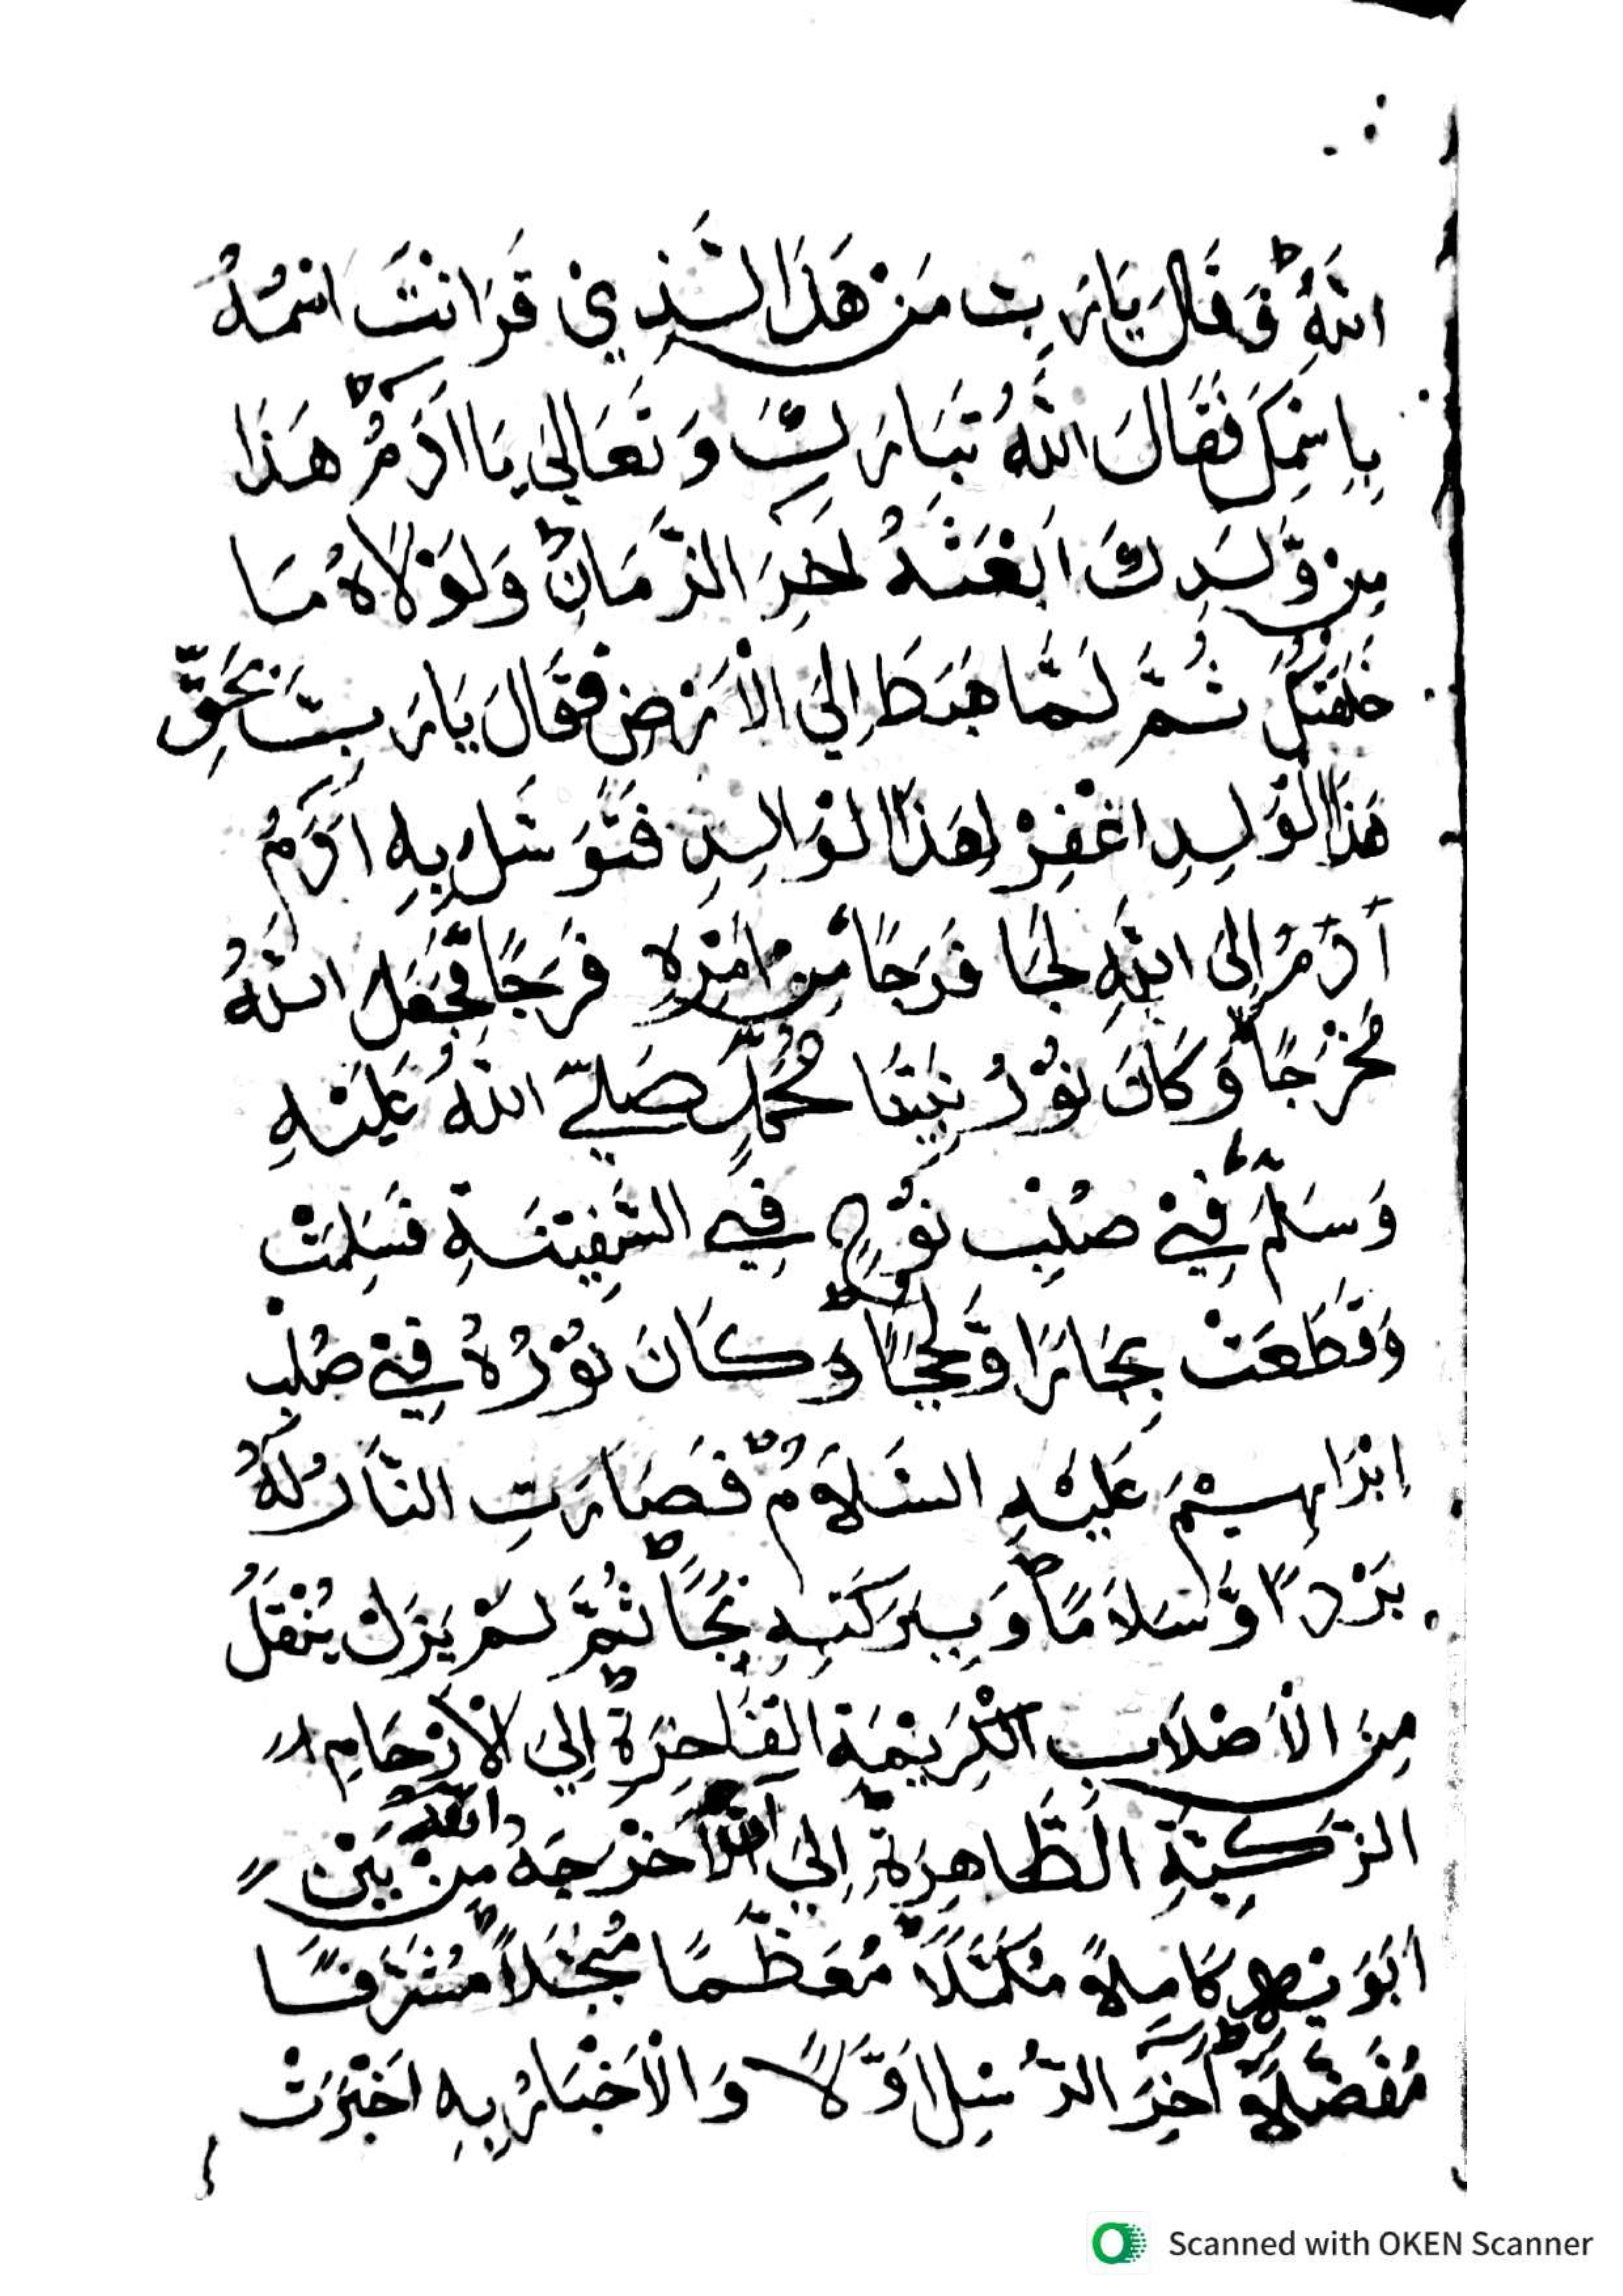 اللهِ فَقَالَ يَارَبِّ مَنْ هَذَا الَّذِيْ قَرَانْتَ اسْمُهُ
بِاسْمِكَ فَقَالَ اللهُ تَبَارَكَ وَتَعَالَى يَا اٰدَمُ هَذَا
مِنْ وَّلَدِكَ اَبْعَثُهُ اٰخِرَ الزَّمَانِ وَلَوْلَاهُ مَا
خَلَقْتُكَ ثُمَّ لَمَّا هَبَطَ اِلَى الْاَرْضِ فَقَالَ يَارَبِّ بِحَقِّ
هَذَا الْوَلَدِ اغْفِرْ لِهَذَا الْوَالِدِ فَتَوَسَّلَ بِهِ اٰدَمُ
اٰدَمُ اِلَى اللهِ لَجَا فَرَجًا مِنْ اَمْرِهِ فَرَجًا فَجَعَلَ اللهُ
مَخْرَجًا وَكَانَ نُوْرُ نَبِيِّنَا مُحَمَّدٍ صَلَّى اللهُ عَلَيْهِ
وَسَلَّمَ فِيْ صُلْبِ نُوْحٍ فِي السَّفِيْنَةِ فَسَلِمَتْ
وَقَطَعَتْ بِحَارًا وَّلُجَجًا وَكَانَ نُوْرُهُ فِيْ صُلْبِ
اِبْرَاهِيْمَ عَلَيْهِ السَّلَامُ فَصَارَتِ النَّارُ لَهُ
بَرْدًا وَّسَلَامًا وَبِبَرَكَتِهِ نَجَا ثُمَّ لَمْ يَزَلْ يُنْقَلُ
مِنَ الْاَصْلَابِ الْكَرِيْمَةِ الْفَاخِرَةِ اِلَى الْاَرْحَامِ
الزَّكِيَّةِ الطَّاهِرَةِ اِلَى اَنْ اَخْرَجَهُ اللهُ مِنْ بَيْنِ
اَبَوَيْهِ كَامِلًا مُكَمَّلًا مُعَظَّمًا مُبَجَّلًا مُشَرَّفًا
مُفَضَّلًا اٰخِرَ الرُّسُلِ اَوَّلًا وَالْاَخْبَارُ بِهِ اَخْبَرَتْ
Scanned with OKEN Scanner